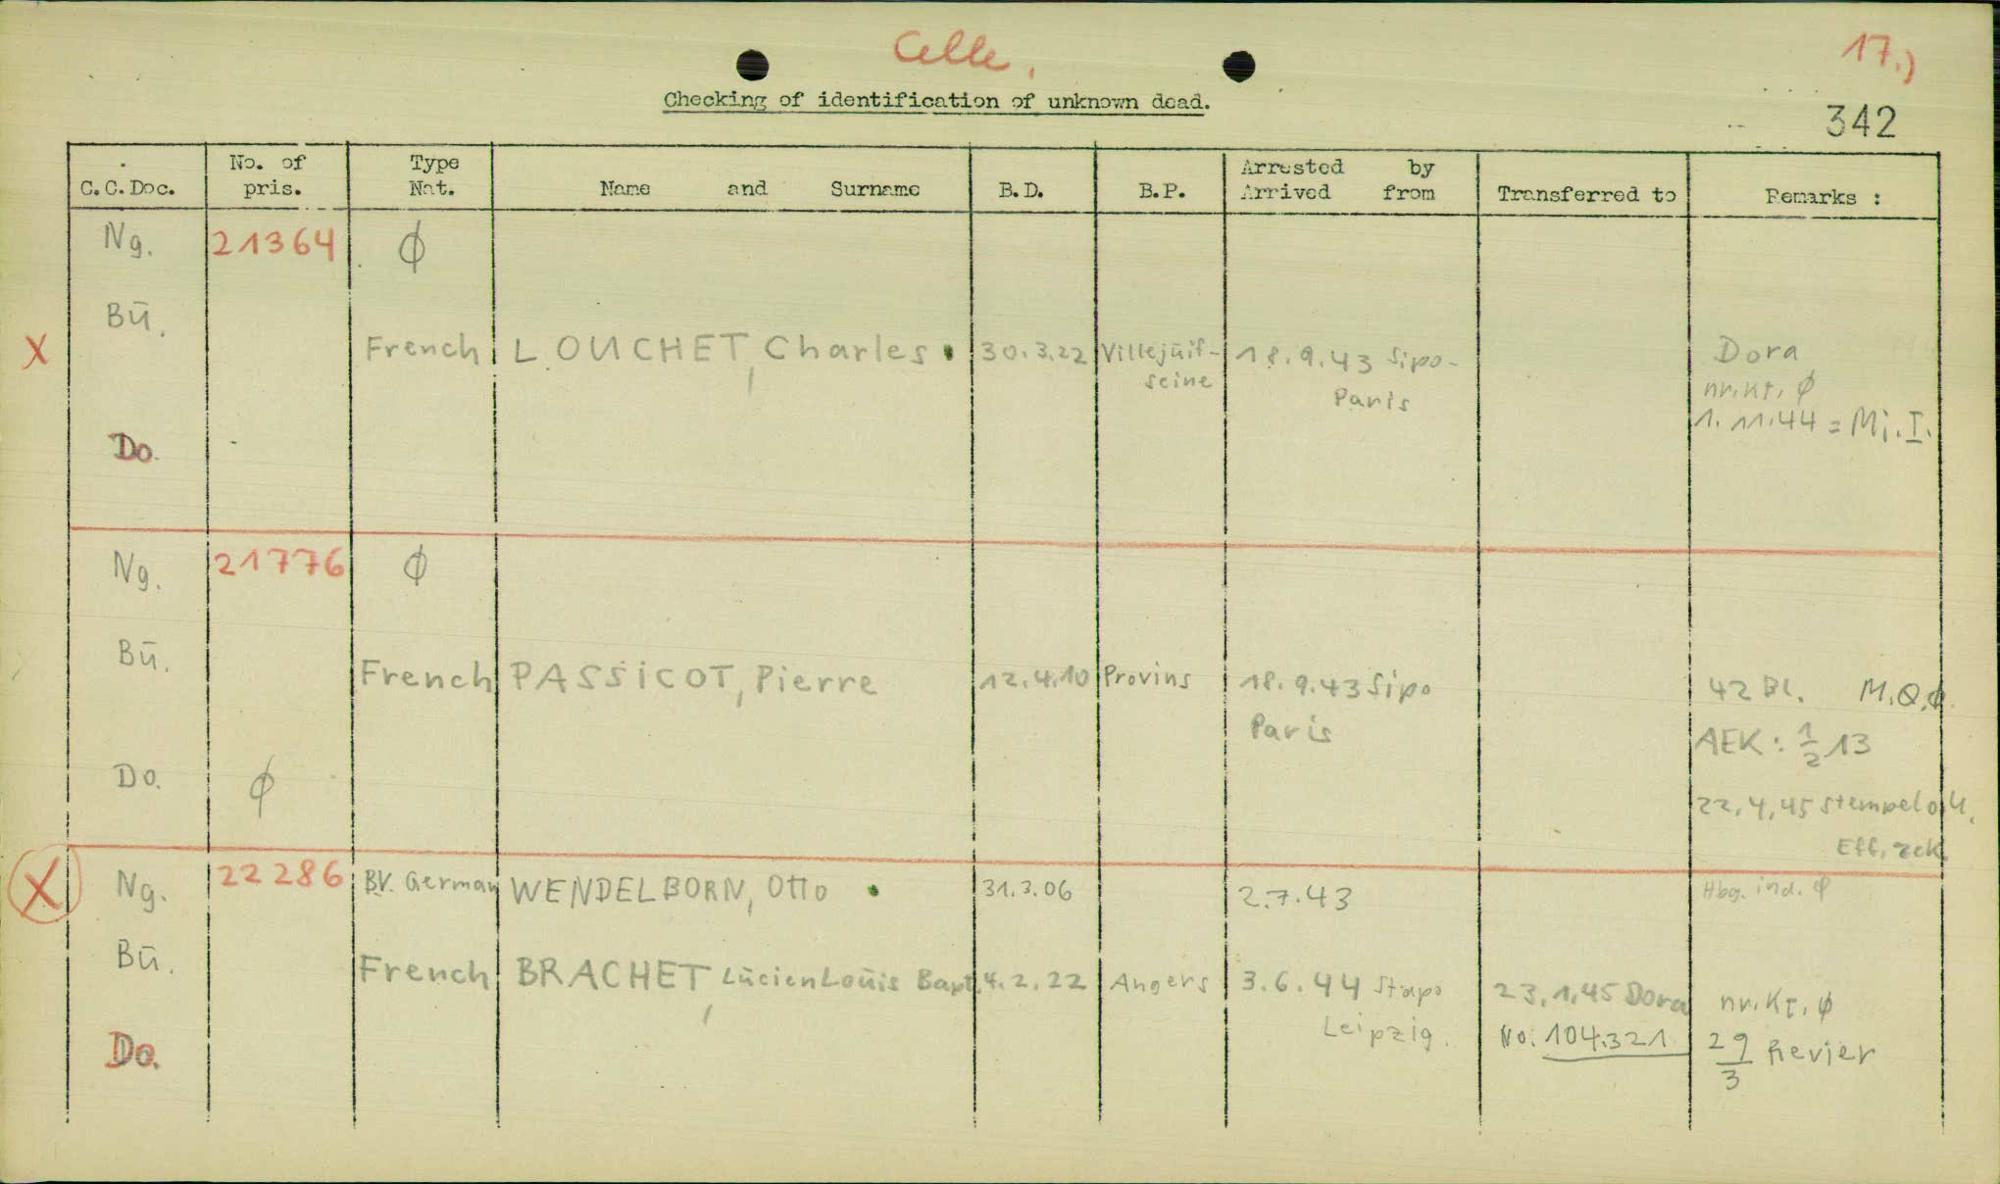 Celle.
17.)
Checking of identification of unknown dead.
342
C.C.Doc. No. of pris. Type Nat. Name and Surname B.D. B.P. Arrested by Arrived from Transferred to Remarks :
Ng. 21364 ϕ
Bū.
X French LOUCHET, Charles 30.3.22 Villejūif- 18.9.43 Sipo- Dora
seine Paris nr.Kt. ϕ
1.11.44 = Mi.I.
Do.
Ng. 21776 ϕ
Bū.
French PASSICOT, Pierre 12.4.10 Provins 18.9.43 Sipo 42 Bl. M.Q.ϕ
Paris AEK: 1/2 13
Do. ϕ 22.4.45 Stempel
Eff.
X Ng. 22286 BV. German WENDELBORN, Otto 31.3.06 2.7.43 Hbg. ind. ϕ
Bū. French BRACHET, Lūcien Loūis Bapt. 4.2.22 Angers 3.6.44 Stapo 23.1.45 Dora nr.Kt. ϕ
Leipzig. No. 104.321 29/3 Revier
Do.